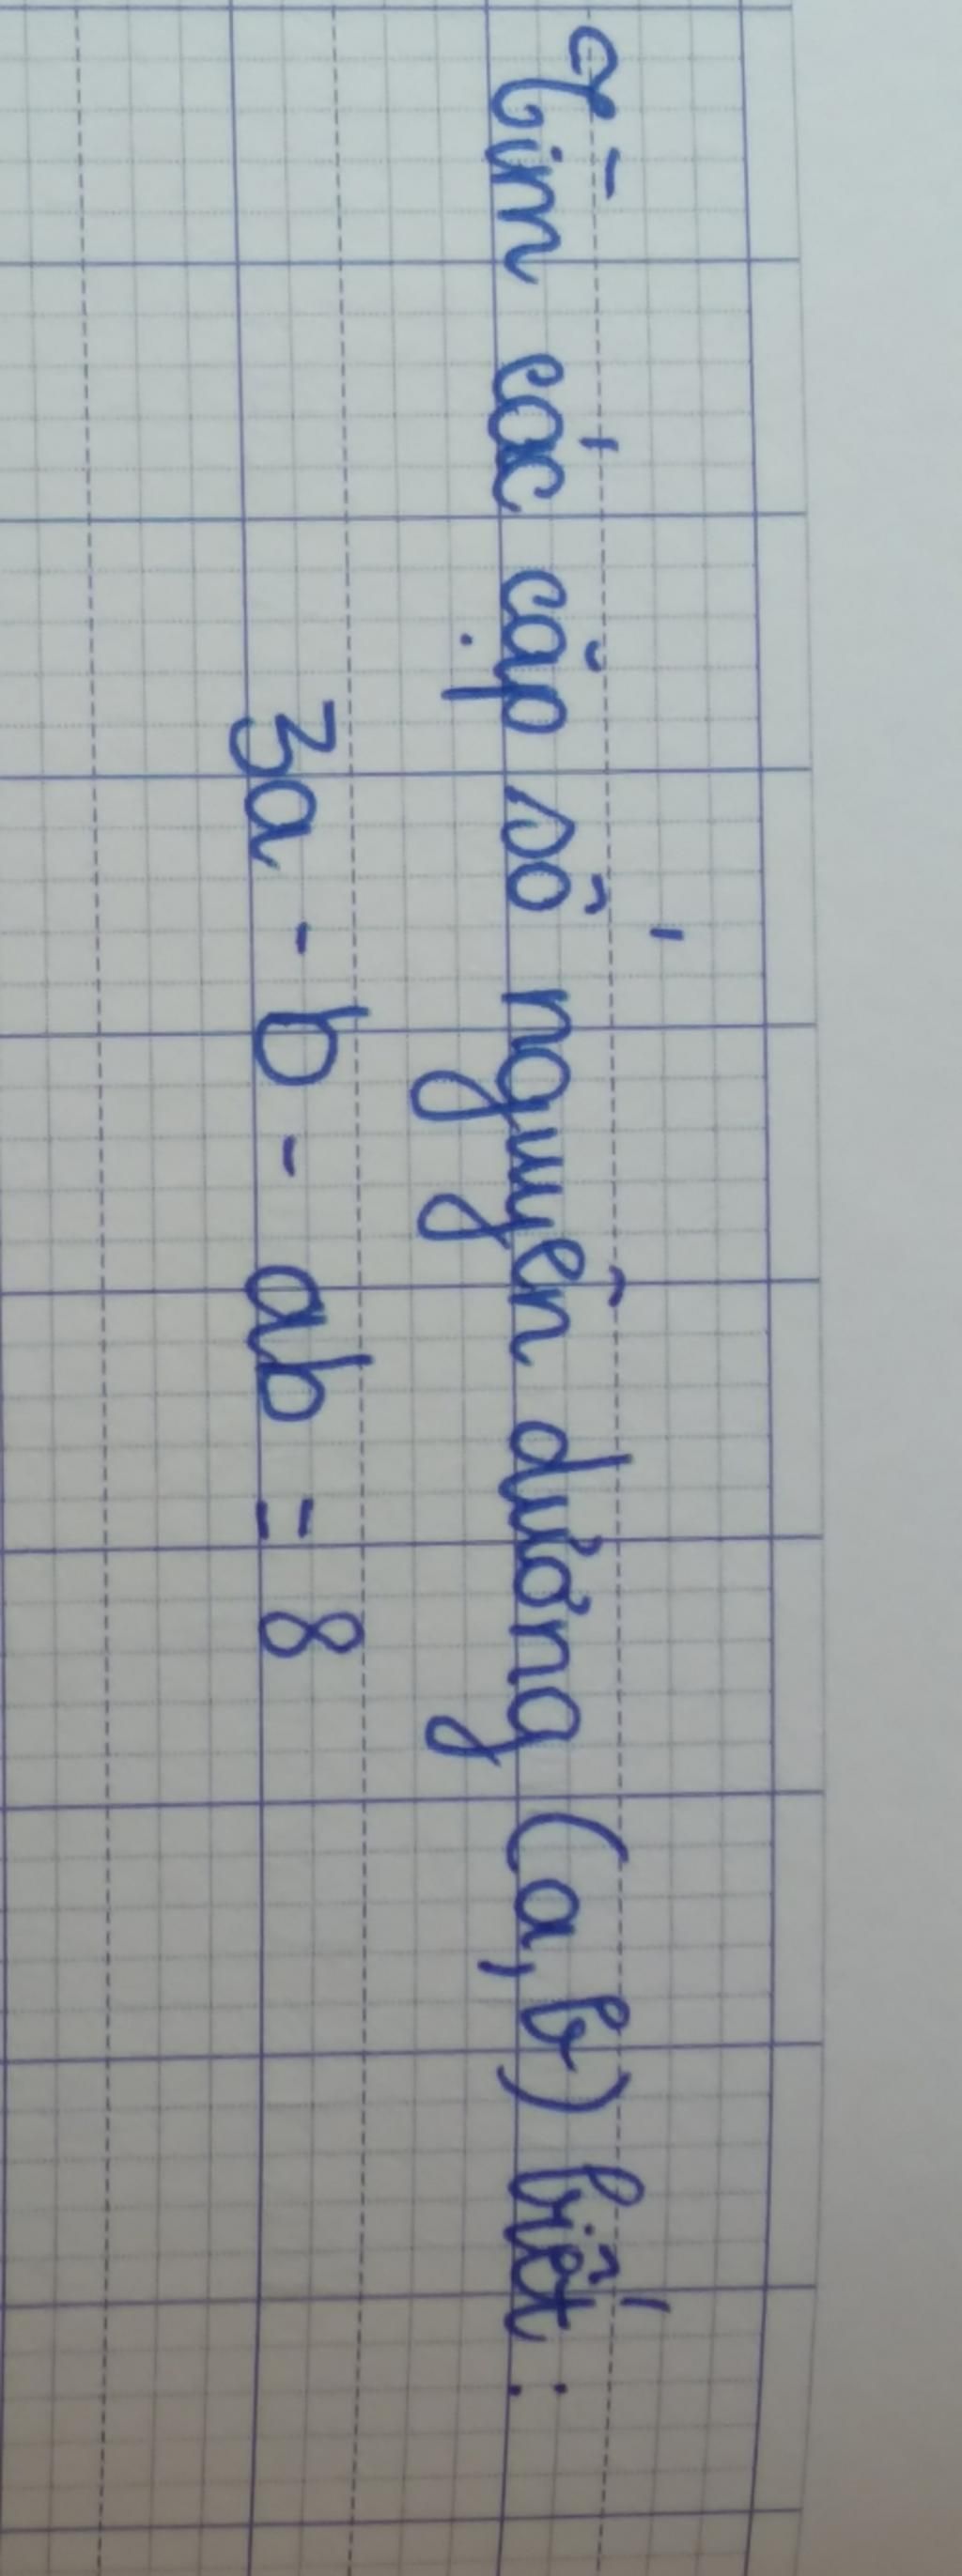 Tìm các cặp số nguyên dương (a,b) biết :
3a - b - ab = 8